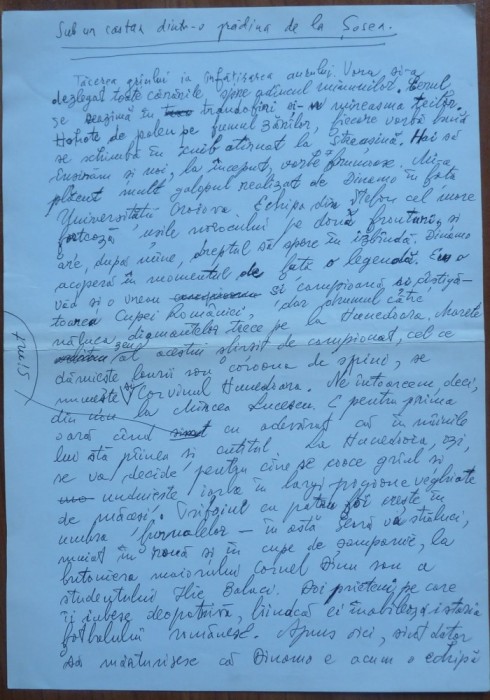 Sub un castan dintr-o grădină de la Șosea.
Tăcerea grîului ia înfățișarea aurului. Vara și-a
dezlegat toate cămările spre adîncul minunilor. Cerul
se reazimă în trandafiri și-n mireasma teilor.
Hohote de polen pe fumul zărilor, fiecare vorbă bună
se schimbă în atîrnat la streașină. Hai să
înșirăm și noi, la început, vorbe frumoase. Mi-a
plăcut mult galopul realizat de Dinamo în fața
Universității Craiova. Echipa din Ștefan cel Mare
forțează ușile norocului pe două fronturi și
are, după mine, dreptul să spere în izbîndă. Dinamo
acoperă în momentul de față o legendă. Eu o
văd și o vreau și campioană și cîștigă-
toarea Cupei României, dar drumul către
năluca diamantelor trece pe la Hunedoara. Marele
zeu al acestui sfîrșit de campionat, cel ce
dăruiește laurii sau coroana de spini, se
numește Corvinul Hunedoara. Ne întoarcem, deci,
din nou la Mircea Lucescu. E pentru prima
oară cînd cu adevărat că în mîinile
lui stă pîinea și cuțitul. La Hunedoara, azi,
se va decide pentru cine se coace grîul și
unduiește iarba în largi pogoane vegheate
de măceși. Trifoiul cu patru foi crește în
umbra furnalelor – în astă seară va străluci,
muiat în rouă și în cupe de șampanie, la
butoniera maiorului Cornel Dinu sau a
studentului Ilie Balaci. Doi prieteni pe care
îi iubesc deopotrivă, fiindcă ei înnobilează istoria
fotbalului românesc. Ajuns aici, sînt dator
să mărturisesc că Dinamo e acum o echipă